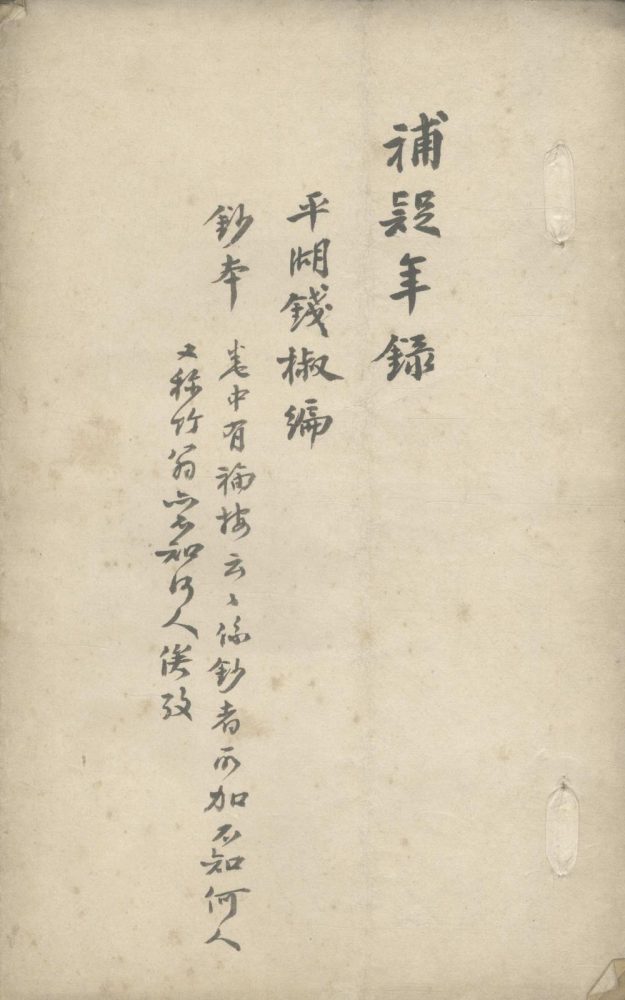 補疑年録
平湖錢椒編
鈔本
卷中有福按云〻係鈔者所加不知何人
又稱竹翁亦不知何人俟攷